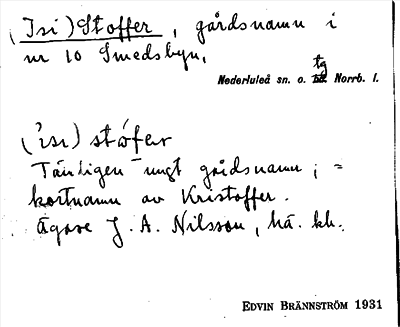 (Isi) Stoffer, gårdsnamn i
nr 10 Smedsbyn,
tg
Nederluleå sn. o. Norrb. l.
(ɩsɩ) stòfər
Tämligen ungt gårdsnamn; =
kortnamn av Kristoffer.
Ägare J. A. Nilsson, hä. kh.
EDVIN BRÄNNSTRÖM 1931